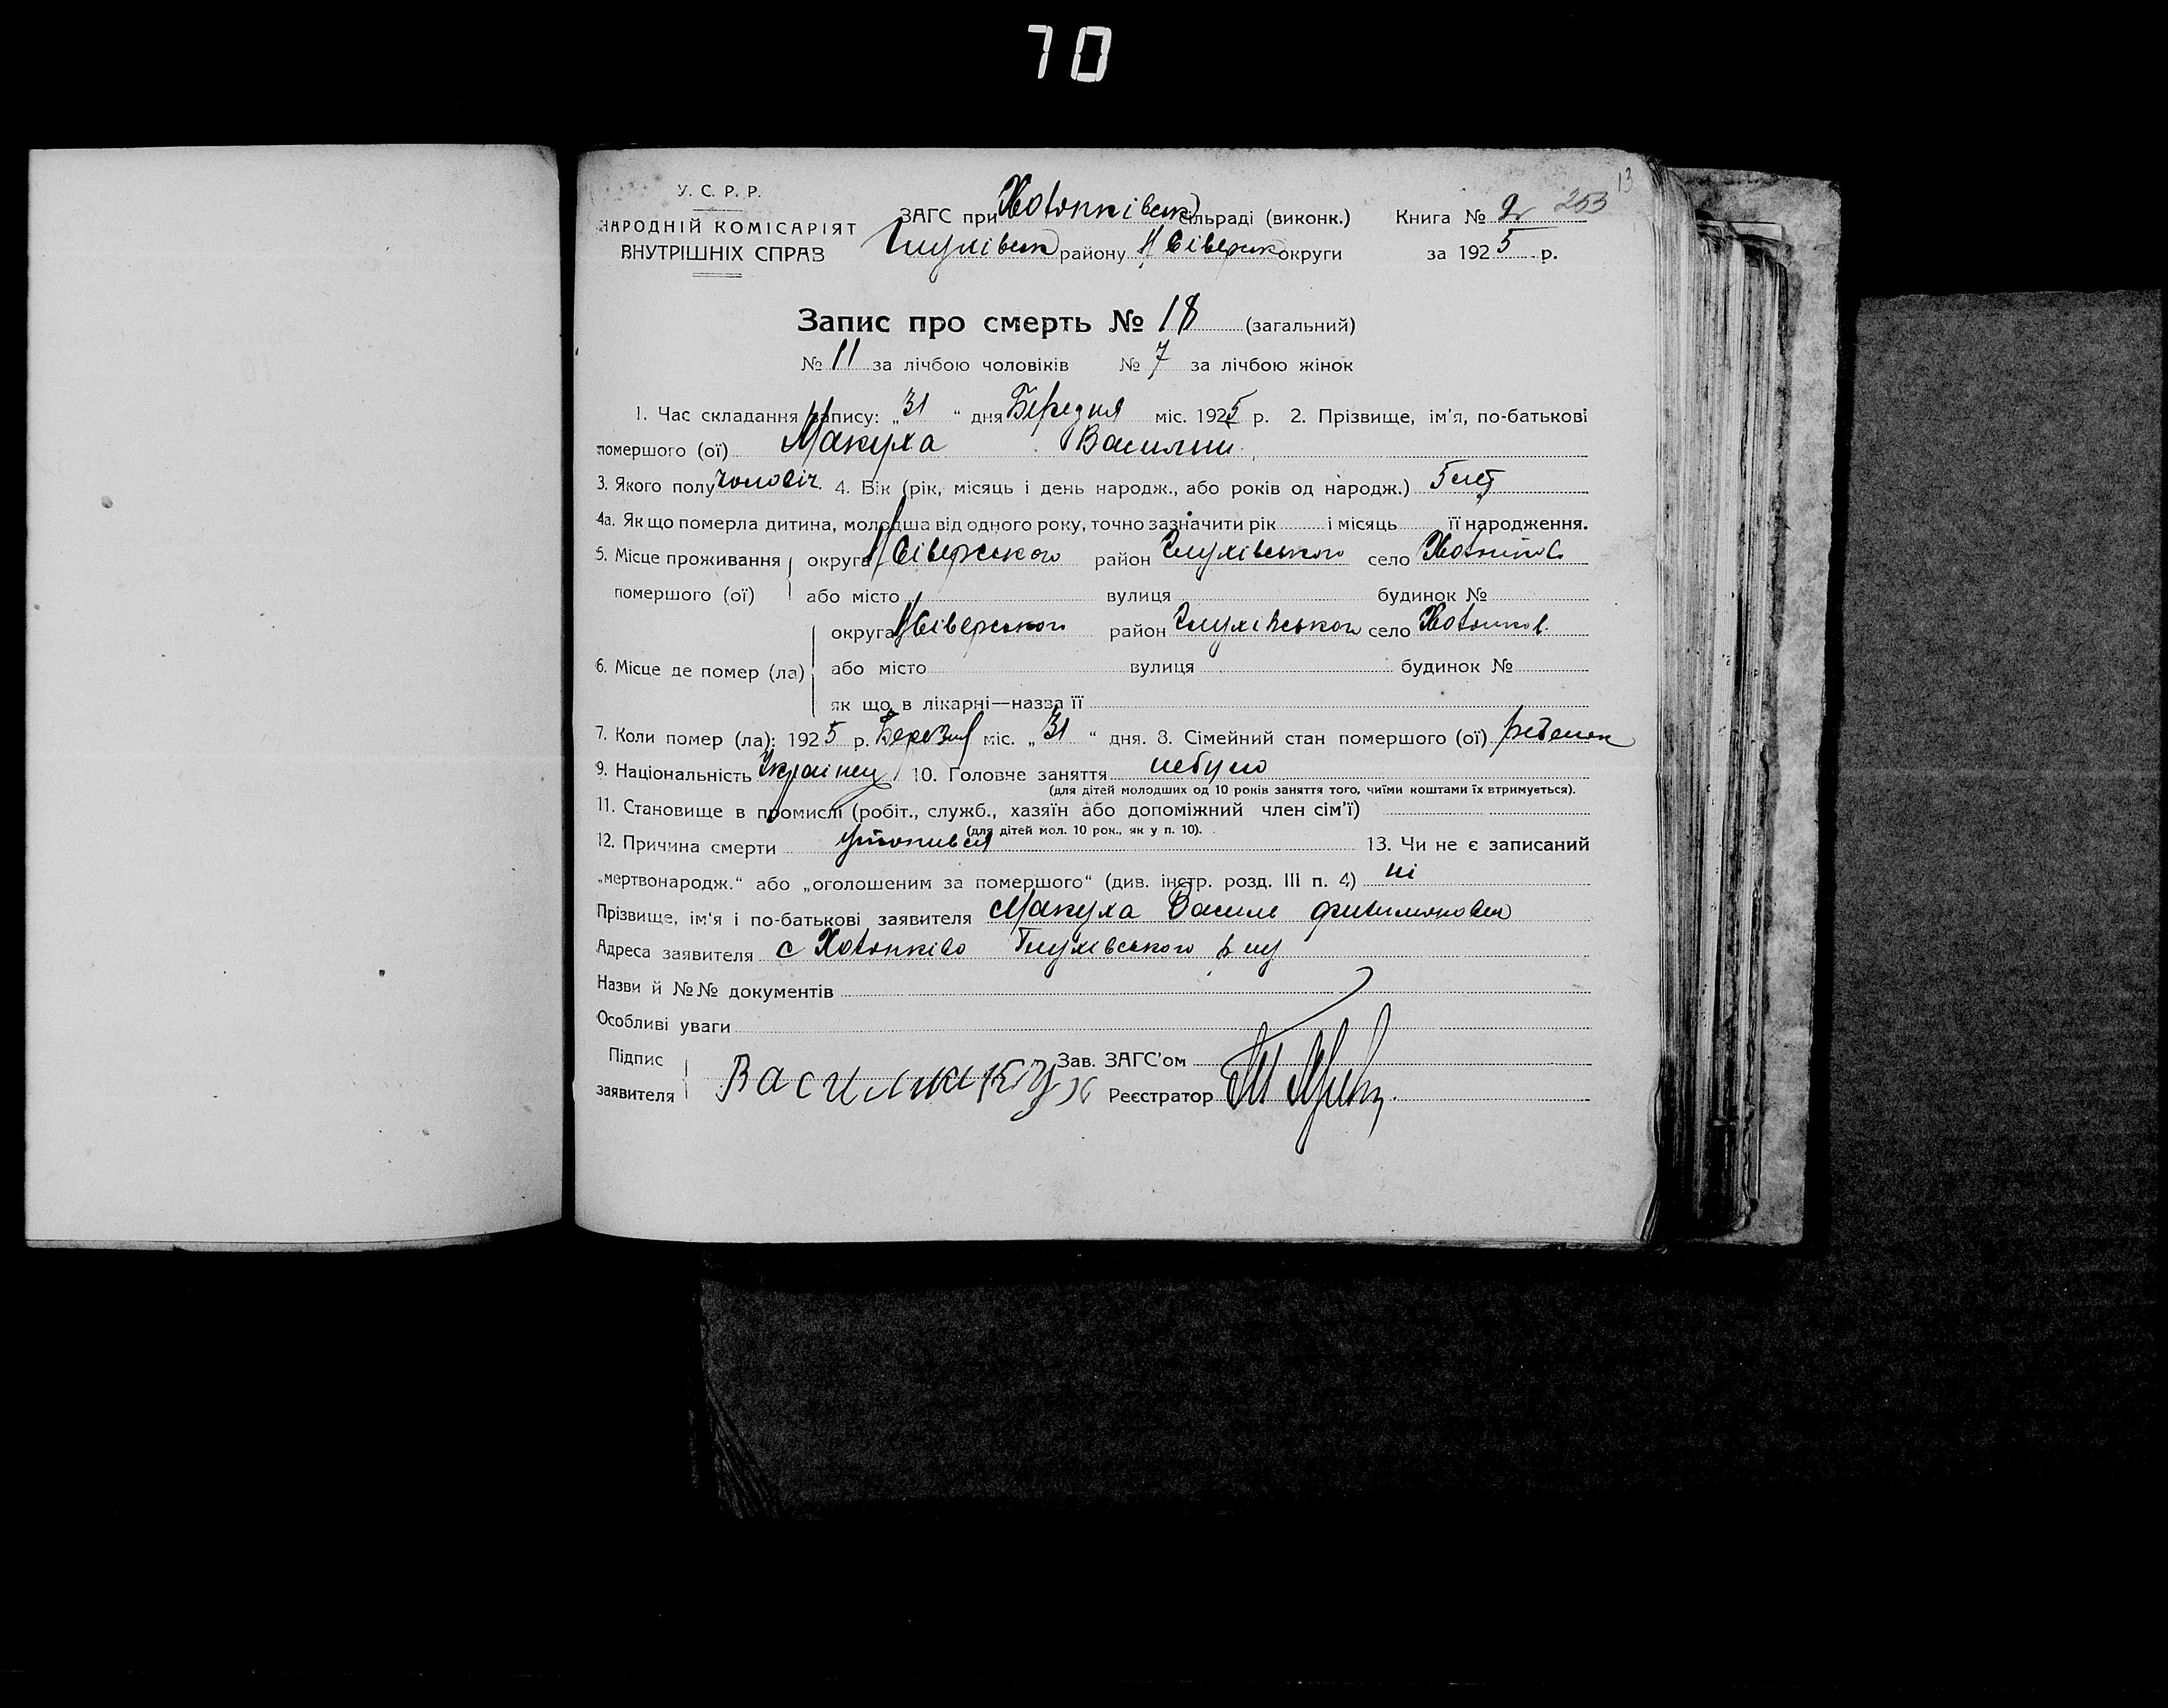 70
13
У. С. Р. Р.
НАРОДНІЙ КОМІСАРІЯТ
ВНУТРІШНІХ СПРАВ
ЗАГС при Хотьминівськ сільраді (виконк.) Книга № 2 253
Глухівськ району Н Сіверськ округи за 1925 р.
Запис про смерть № 18 (загальний)
№ 11 за лічбою чоловіків № 7 за лічбою жінок
1. Час складання запису: „31“ дня Березня міс. 1925 р. 2. Прізвище, ім'я, по-батькові
помершого (ої) Макуха
3. Якого полу чоловіч. 4. Вік (рік, місяць і день народж., або років од народж.) 5 лет
4а. Як що померла дитина, молодша від одного року, точно зазначити рік і місяць її народження.
5. Місце проживання округа Н Сіверського район Глухівського село
помершого (ої) або місто вулиця будинок №
округа Н Сіверського район Глухівського село
6. Місце де помер (ла) або місто вулиця будинок №
як що в лікарні—назва її
7. Коли помер (ла): 1925 р. Березня міс. „31“ дня. 8. Сімейний стан помершого (ої) ребенок
9. Національність Украінец 10. Головче заняття небуло
(для дітей молодших од 10 років заняття того, чиїми коштами їх втримується).
11. Становище в промислі (робіт., служб., хазяїн або допоміжний член сім'ї)
(для дітей мол. 10 рок., як у п. 10).
12. Причина смерти утопився 13. Чи не є записаний
„мертвонародж.“ або „оголошеним за помершого“ (див. інстр. розд. III п. 4) ні
Прізвище, ім'я і по-батькові заявителя Макуха Василь Филимонович
Адреса заявителя с Глухівського р ну
Назви й №№ документів
Особливі уваги
Підпис Зав. ЗАГС'ом
заявителя Васил Макух Реєстратор